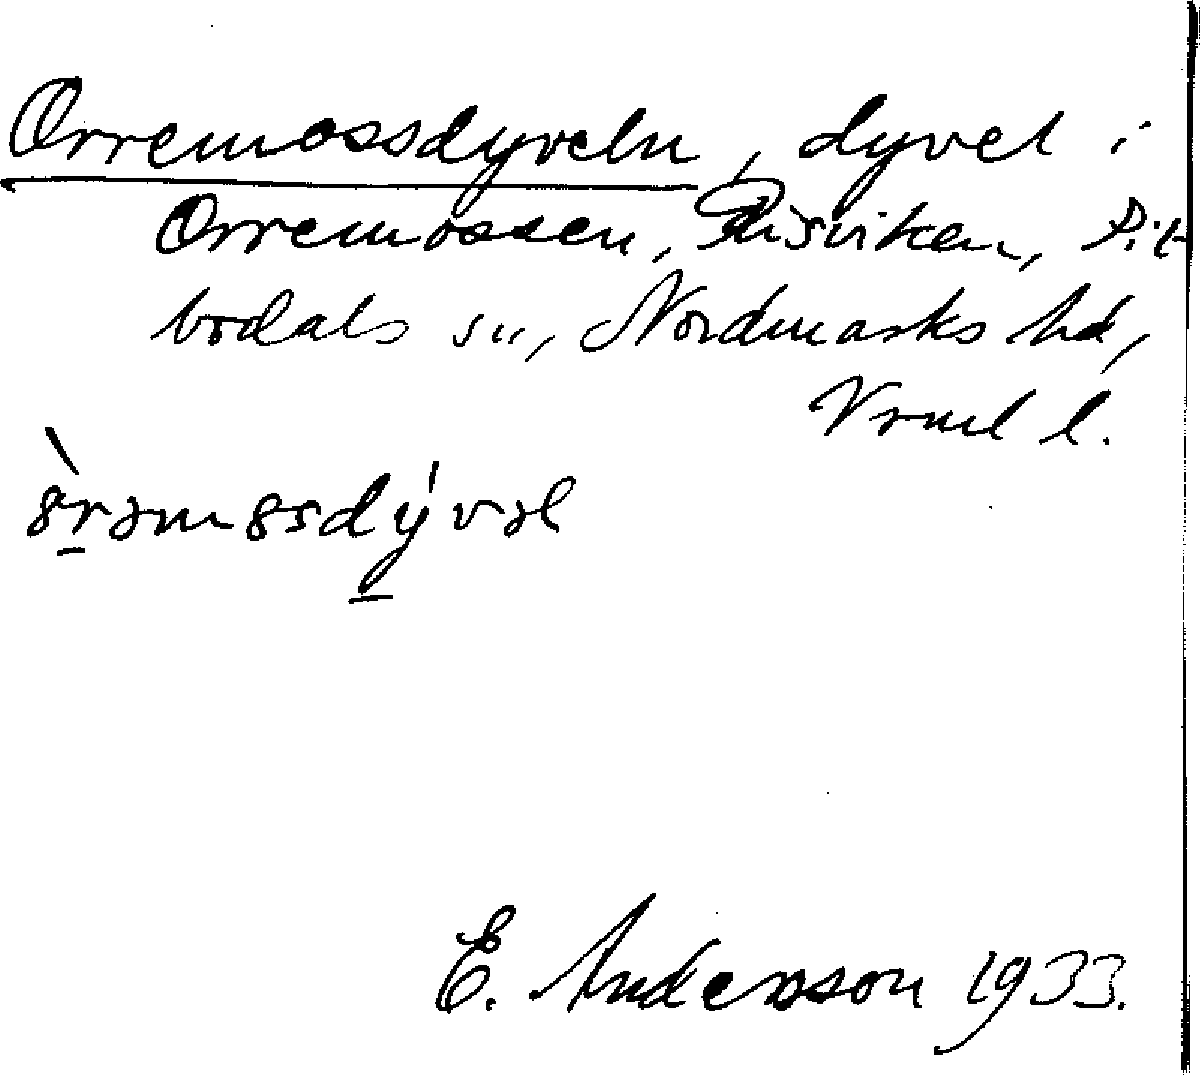 Orremossdyveln, dyvel i
Orremossen, Risviken, Sil-
bodals sn, Nordmarks hd,
Vrml l.
E. Anderson 1933.